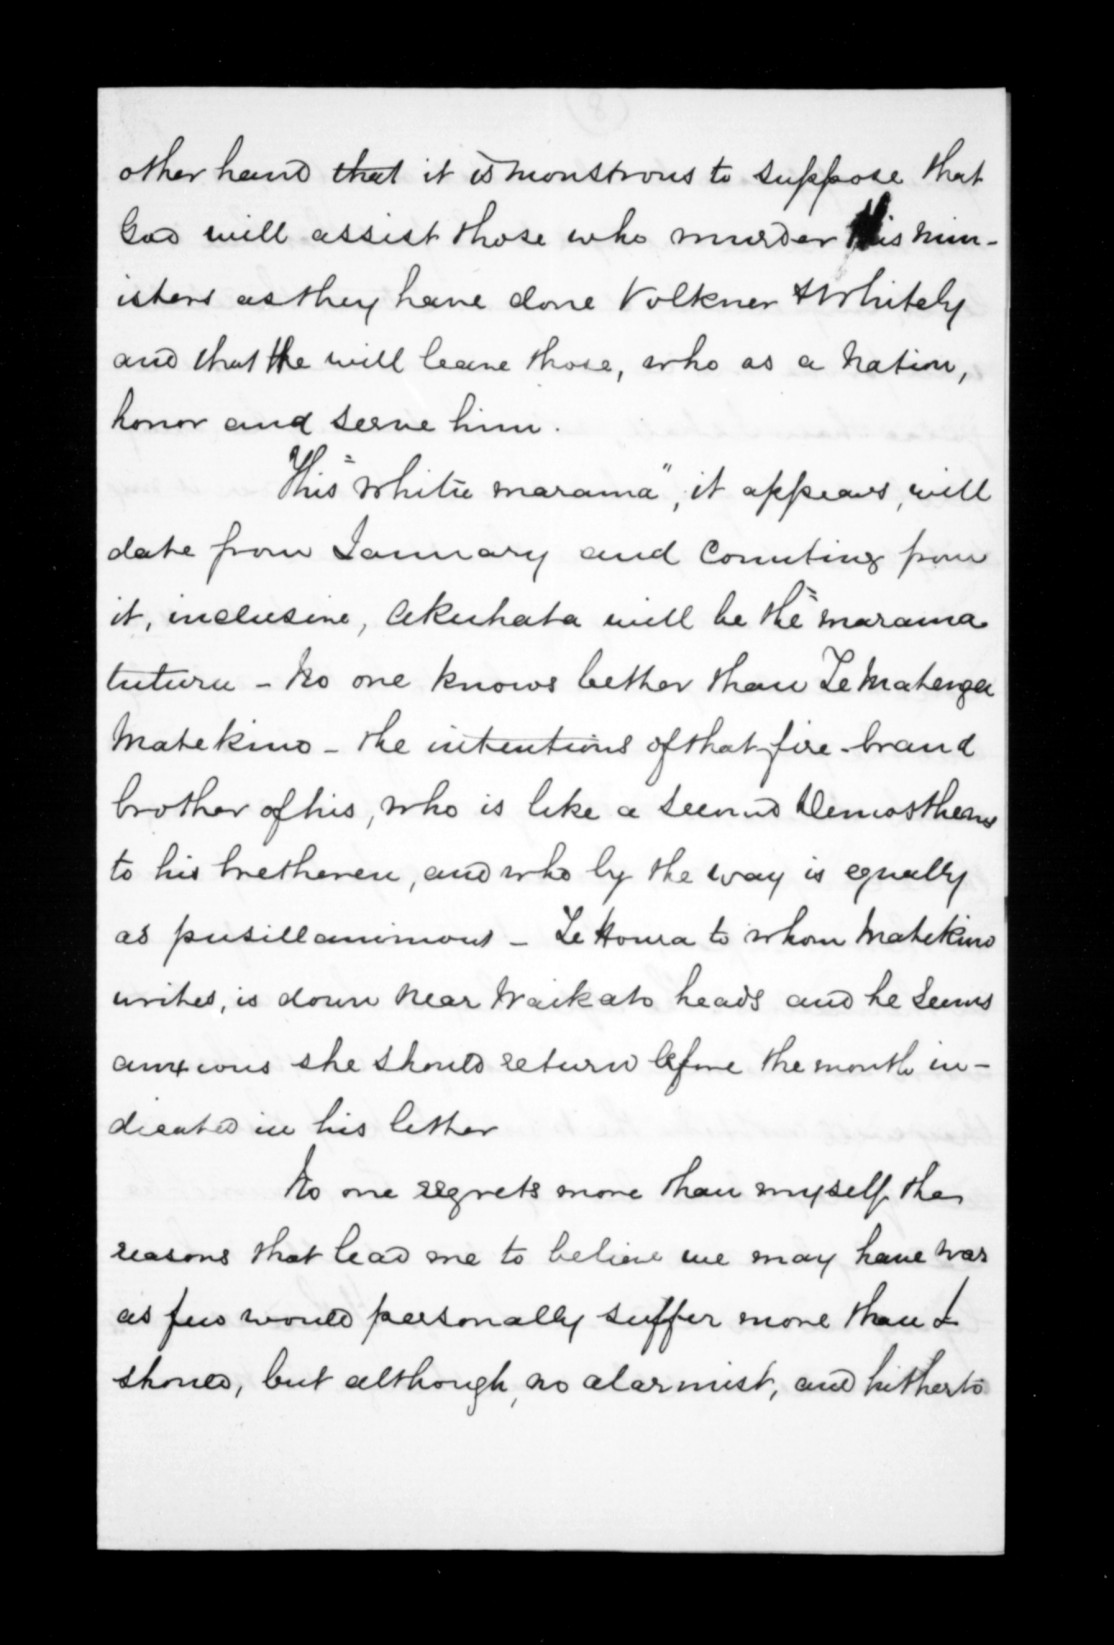 other hand that it is monstrous to suppose that
God will assist those who murder His min-
isters as they have done Volkner & Whitely
and that He will leave those, who as a nation,
honor and serve him.
This "whitu marama", it appears, will
date from January and counting from
it, inclusive, Akuhata will be the "marama
tuturu - No one knows better than Te Matenga
Matekino - the intentions of that fire-brand
brother of his, who is like a second Demosthenes
to his bretheren, and who by the way is equally
as pusillanimous - Te Houra to whom Matekino
writes, is down near Waikato heads and he seems
anxious she should return before the month in-
dicated in his letter
No one regrets more than myself the
reasons that lead me to believe we may have war
as few would personally suffer more than I
should, but although, no alarmist, and hitherto